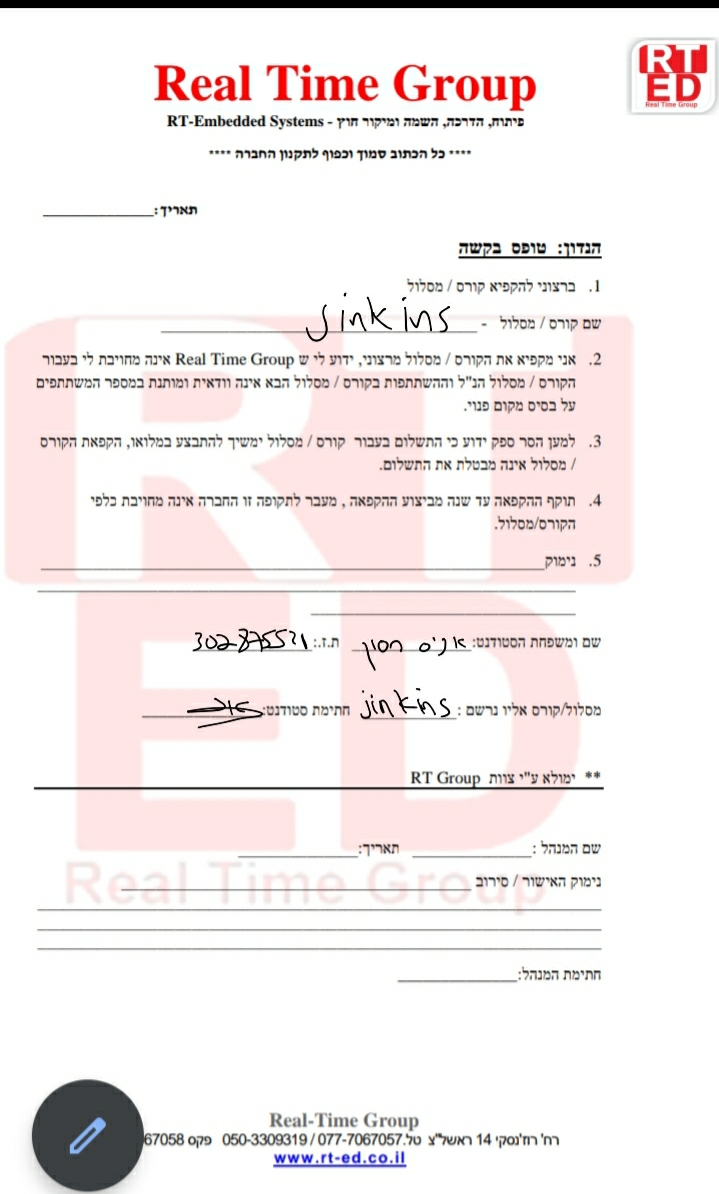 Real Time Group
RT
ED
Real Time Group
RT-Embedded Systems - פיתוח, הדרכה, השמה ומיקור חוץ
**** כל הכתוב סמוך וכפוף לתקנון החברה ****
תאריך:
הנדון: טופס בקשה
1. ברצוני להקפיא קורס / מסלול
שם קורס / מסלול - Jinkins
2. אני מקפיא את הקורס / מסלול מרצוני, ידוע לי ש Real Time Group אינה מחויבת לי בעבור
הקורס / מסלול הנ"ל וההשתתפות בקורס / מסלול הבא אינה וודאית ומותנת במספר המשתתפים
על בסיס מקום פנוי.
3. למען הסר ספק ידוע כי התשלום בעבור קורס / מסלול ימשיך להתבצע במלואו, הקפאת הקורס
/ מסלול אינה מבטלת את התשלום.
4. תוקף ההקפאה עד שנה מביצוע ההקפאה , מעבר לתקופה זו החברה אינה מחויבת כלפי
הקורס/מסלול.
5. נימוק
שם ומשפחת הסטודנט: אניס חסון ת.ז.: 302875531
מסלול/קורס אליו נרשם : jinkins חתימת סטודנט:
** ימולא ע"י צוות RT Group
שם המנהל : תאריך:
נימוק האישור / סירוב
חתימת המנהל:
RT
ED
Real Time Group
Real-Time Group
רח' רוז'נסקי 14 ראשל"צ טל.077-7067057 / 050-3309319 פקס 67058
www.rt-ed.co.il